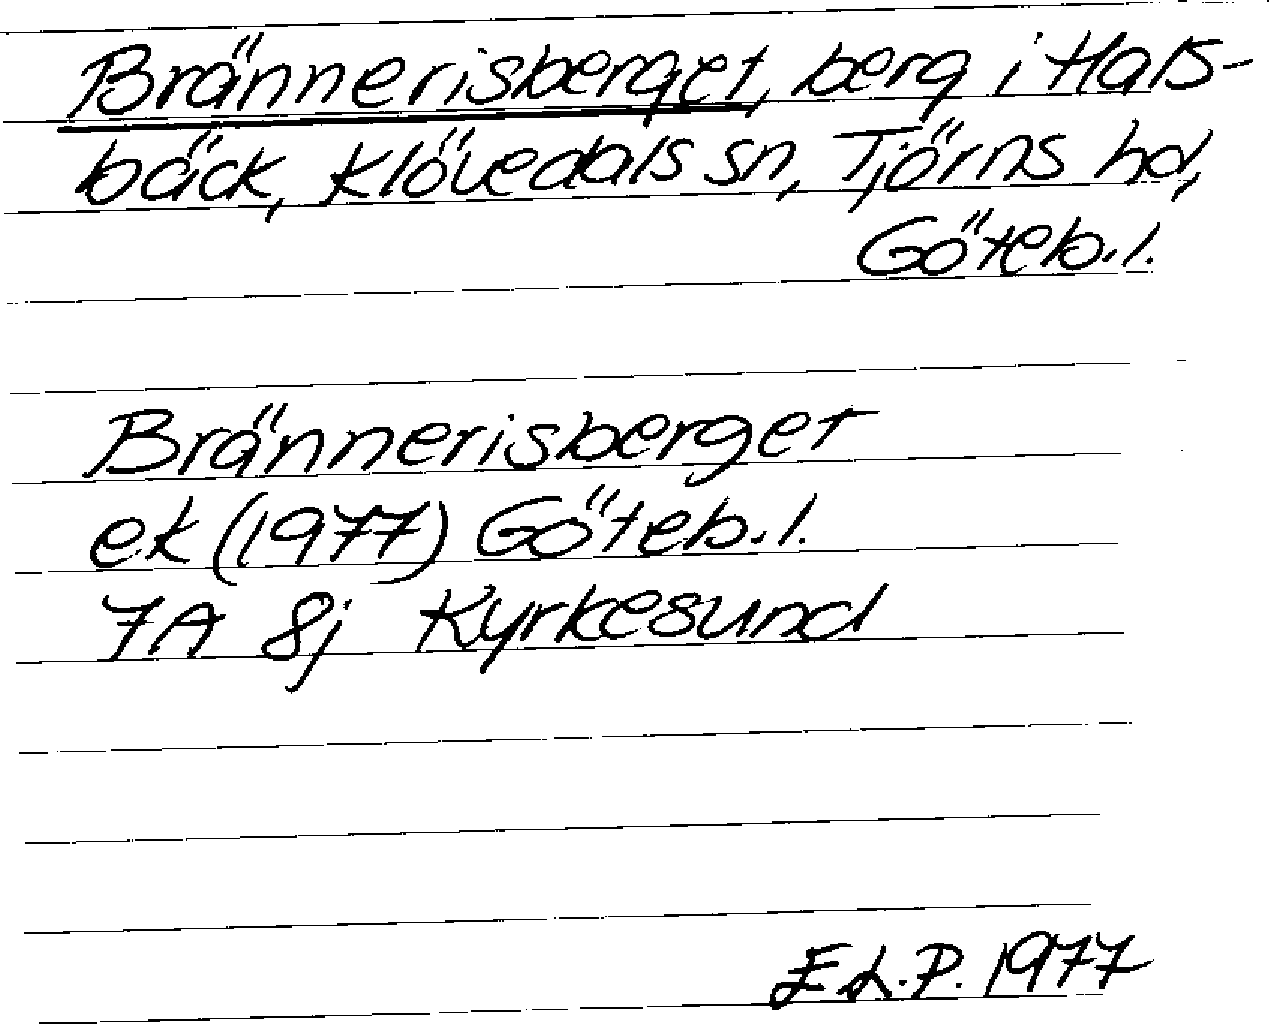 Brännerisberget, berg i Hals-
bäck, Klövedals sn, Tjörns hd,
Göteb. l.
Brännerisberget
ek (1977) Göteb. l.
7A 8j Kyrkesund
E L.P. 1977